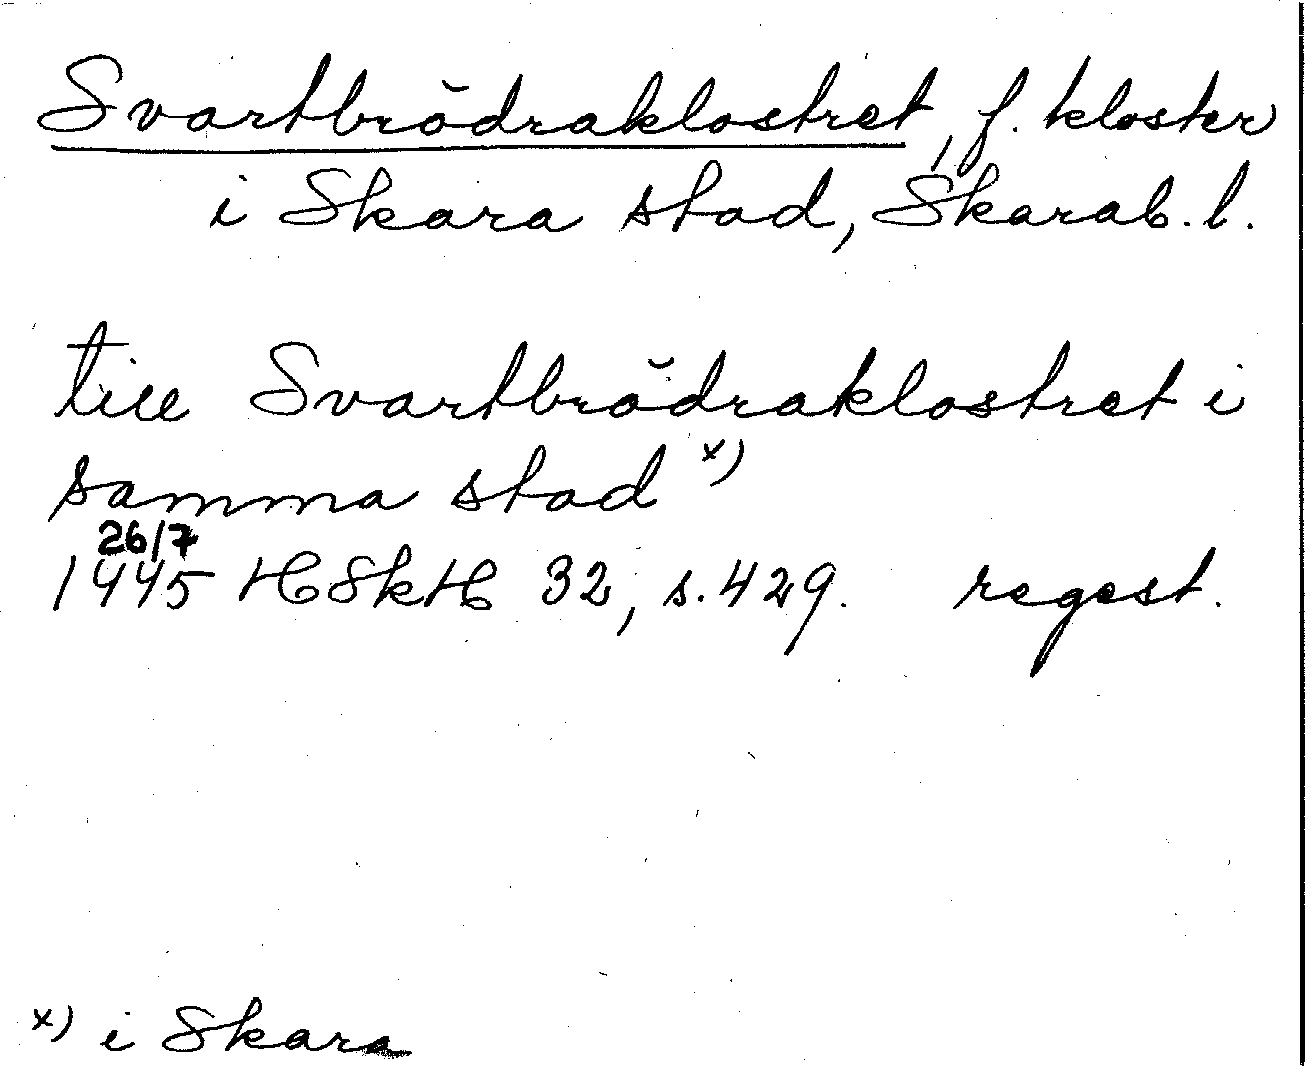 Svartbrödraklostret, f. kloster
i Skara stad, Skarab. l.
till Svartbrödraklostret i
samma stad x)
26/7
1445 HSkH 32, s. 429. regest.
x) i Skara